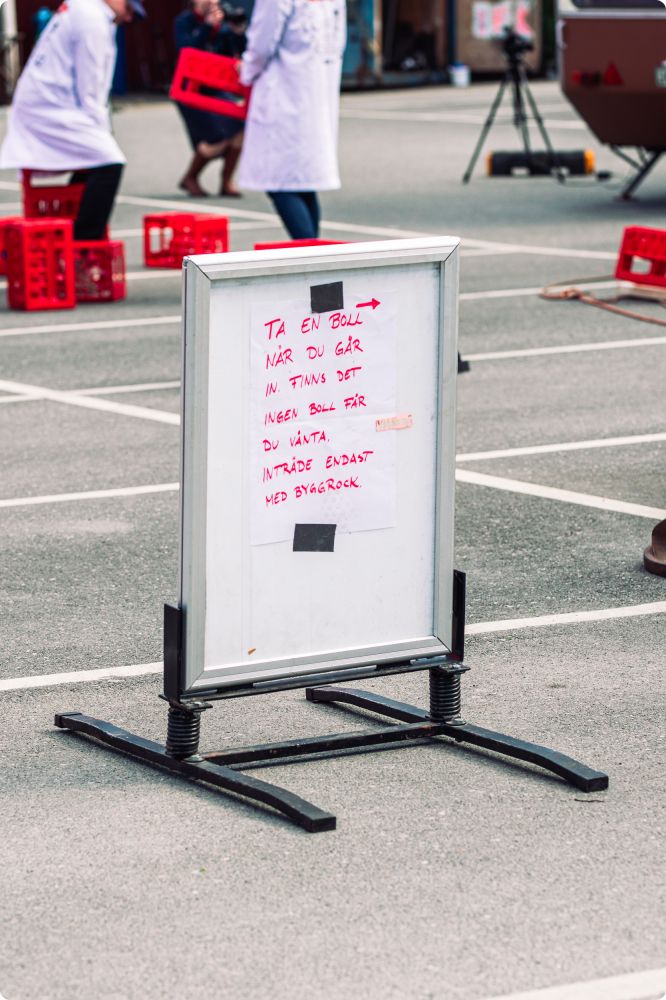 TA EN BOLL →
NÄR DU GÅR
IN. FINNS DET
INGEN BOLL FÅR
DU VÄNTA.
INTRÄDE ENDAST
MED BYGGROCK.